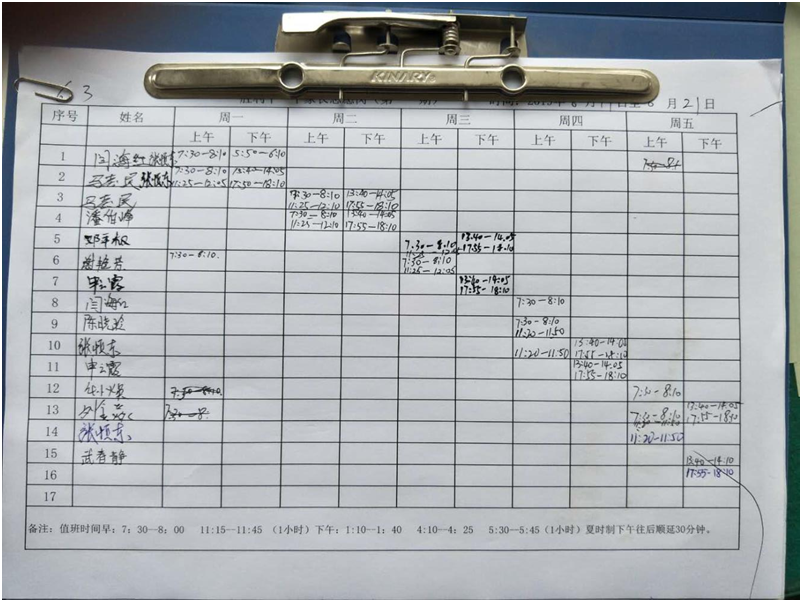 KINARY
3
月21日
序号 姓名 周一 周二 周三 周四 周五
上午 下午 上午 下午 上午 下午 上午 下午 上午 下午
1 闫海红 张惯东 7:30—8:10 5:50—6:10
2 马志民 张惯东 7:30—8:10 13:40—14:05
11:25—12:05 17:50—18:10
3 马志民 7:30—8:10 13:40—14:05
11:25—12:10 17:55—18:10
4 潘伯峰 7:30—8:10 13:40—14:05
11:25—12:10 17:55—18:10
5 郑平 7:30—8:10 13:40—14:05
17:55—18:10
6 7:30—8:10 7:30—8:10
11:25—12:05
7 申霞 13:40—14:05
17:55—18:10
8 闫海红 7:30—8:10
9 陈晓玲 7:30—8:10
11:20—11:50
10 张惯东 11:20—11:50 13:40—14:05
17:55—18:10
11 申霞 13:40—14:05
17:55—18:10
12 7:30—8:10
13 7:30—8:10 13:40—14:05
17:55—18:10
14 张惯东 11:20—11:50
15 武春静 13:40—14:10
16 17:55—18:10
17
备注：值班时间早：7：30—8：00 11:15--11:45 （1小时）下午：1:10—1：40 4:10—4：25 5:30—5:45（1小时）夏时制下午往后顺延30分钟。